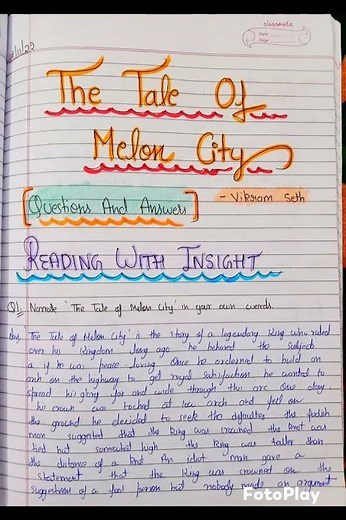 classmate
Date
Page
The Tale Of
Melon City
[Questions And Answers]
- Vikram Seth
READING WITH INSIGHT
Q1. Narrate 'The Tale of Melon City' in your own words.
Ans. 'The Tale of Melon City' is the story of a legendary King who ruled
over his Kingdom long ago he behaved the subjects
a if he was peace-loving Once he ordered to build an
arch on the highway to get royal satisfaction he wanted to
spread his glory far and wide through this arc One day,
his crown was at low arch and fell on
the ground he decided to seek the defaulter the foolish
man suggested that the King was crowned the
tied but somewhat high the King was taller than
the distance of a An idiot man gave a
statement that the King was crowned on the
suggestions of a fool person but nobody made an argument
FotoPlay